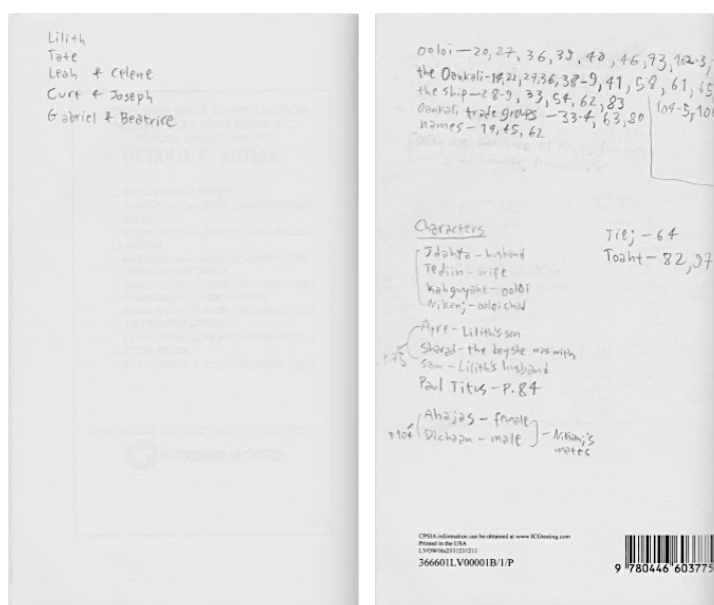 Lilith
Tate
Leah & Celene
Curt & Joseph
Gabriel & Beatrice
ooloi – 20, 27, 36, 39, 40, 46, 73, 102-3,
the Oankali – 19, 22, 27, 36, 38-9, 41, 58, 61, 65
104-5, 10
the ship – 28-9, 33, 54, 62, 83
Oankali trade groups – 33-4, 63, 80
names – 19, 45, 62
Characters
Jdahya – husband
Tediin – wife
Kahguyaht – ooloi
Nikanj – ooloi child
Tiej – 64
Toaht – 82, 97
Ayre – Lilith's son
Sharad – the boy she was with
Sam – Lilith's husband
Paul Titus – P.84
Ahajas – female
p.104
Dichaan – male
Nikanj's mates
CPSIA information can be obtained at www.ICGtesting.com
Printed in the USA
366601LV00001B/1/P
9 780446 603775